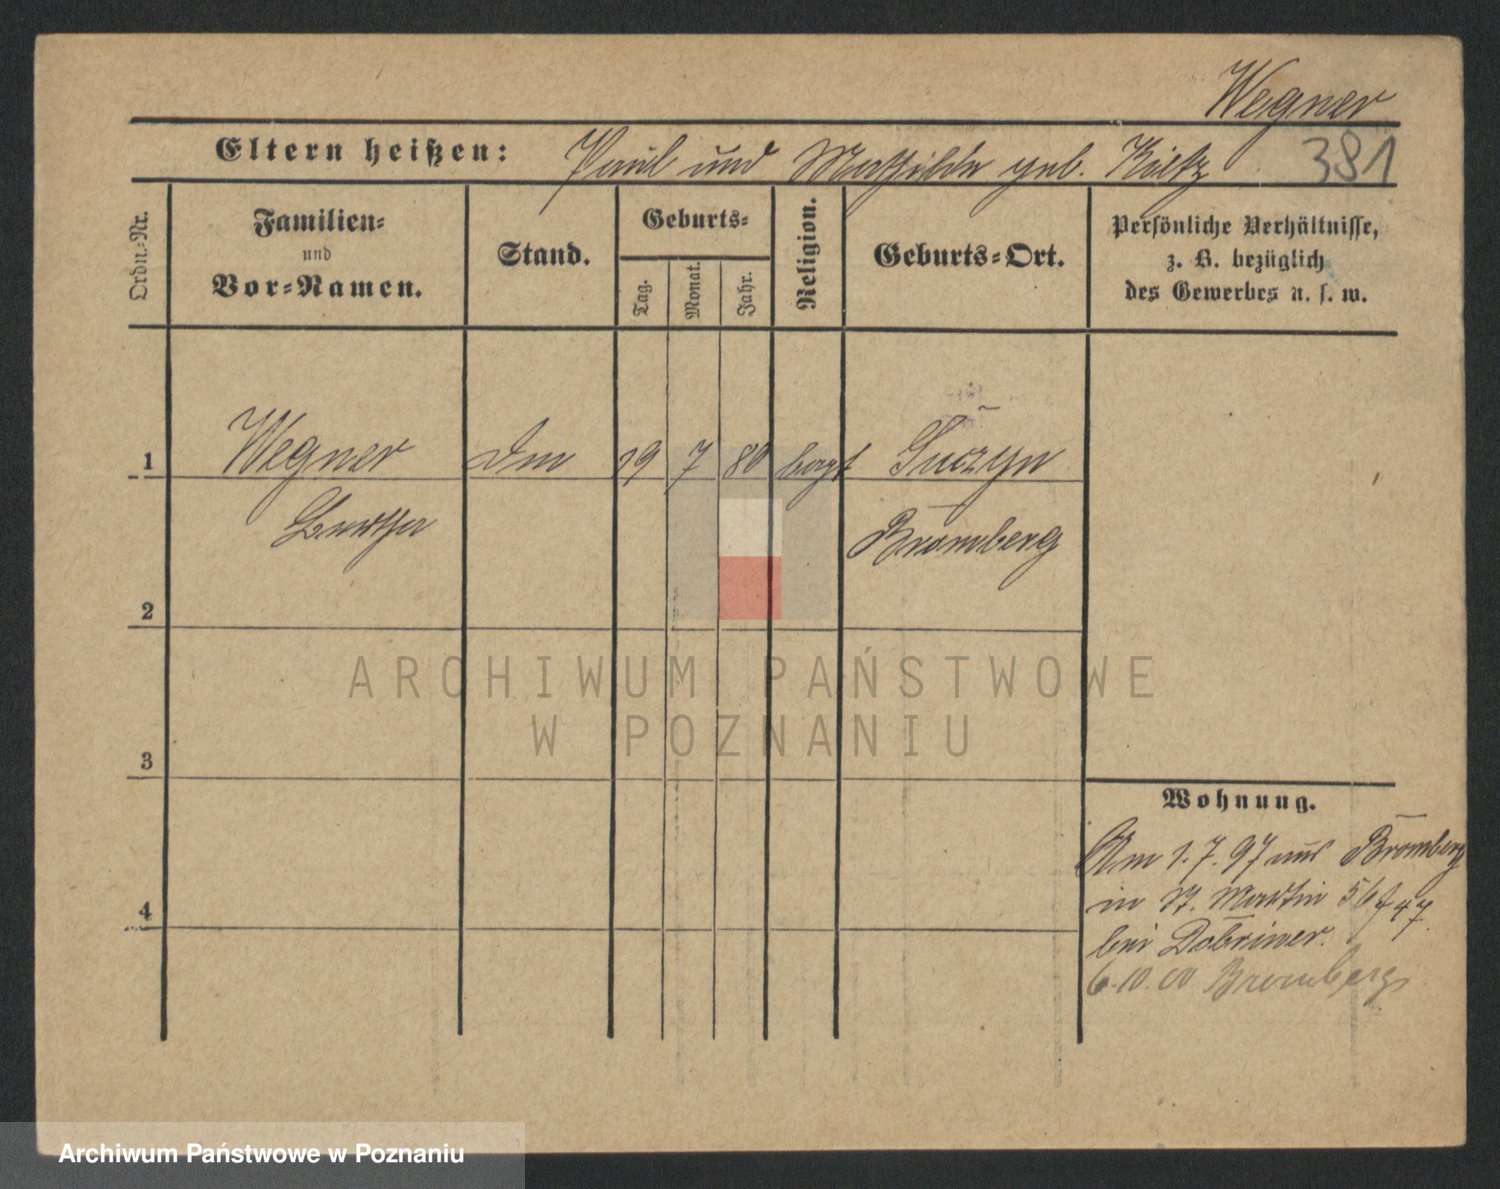 Wegner
Eltern heißen: Paul und Mathilde geb.
381
Ordn.-Nr.
Familien-
und
Vor-Namen.
Stand.
Geburts-
Tag.
Monat.
Jahr.
Religion.
Geburts-Ort.
Persönliche Verhältnisse,
z. B. bezüglich
des Gewerbes u. s. w.
1 Wegner 19 7 80
Bertha Bromberg
2
3
4
ARCHIWUM PAŃSTWOWE
W POZNANIU
Wohnung.
Am 1.7.97 aus Bromberg
in St. Martin
bei Dobriner.
6.10.00 Bromberg
Archiwum Państwowe w Poznaniu